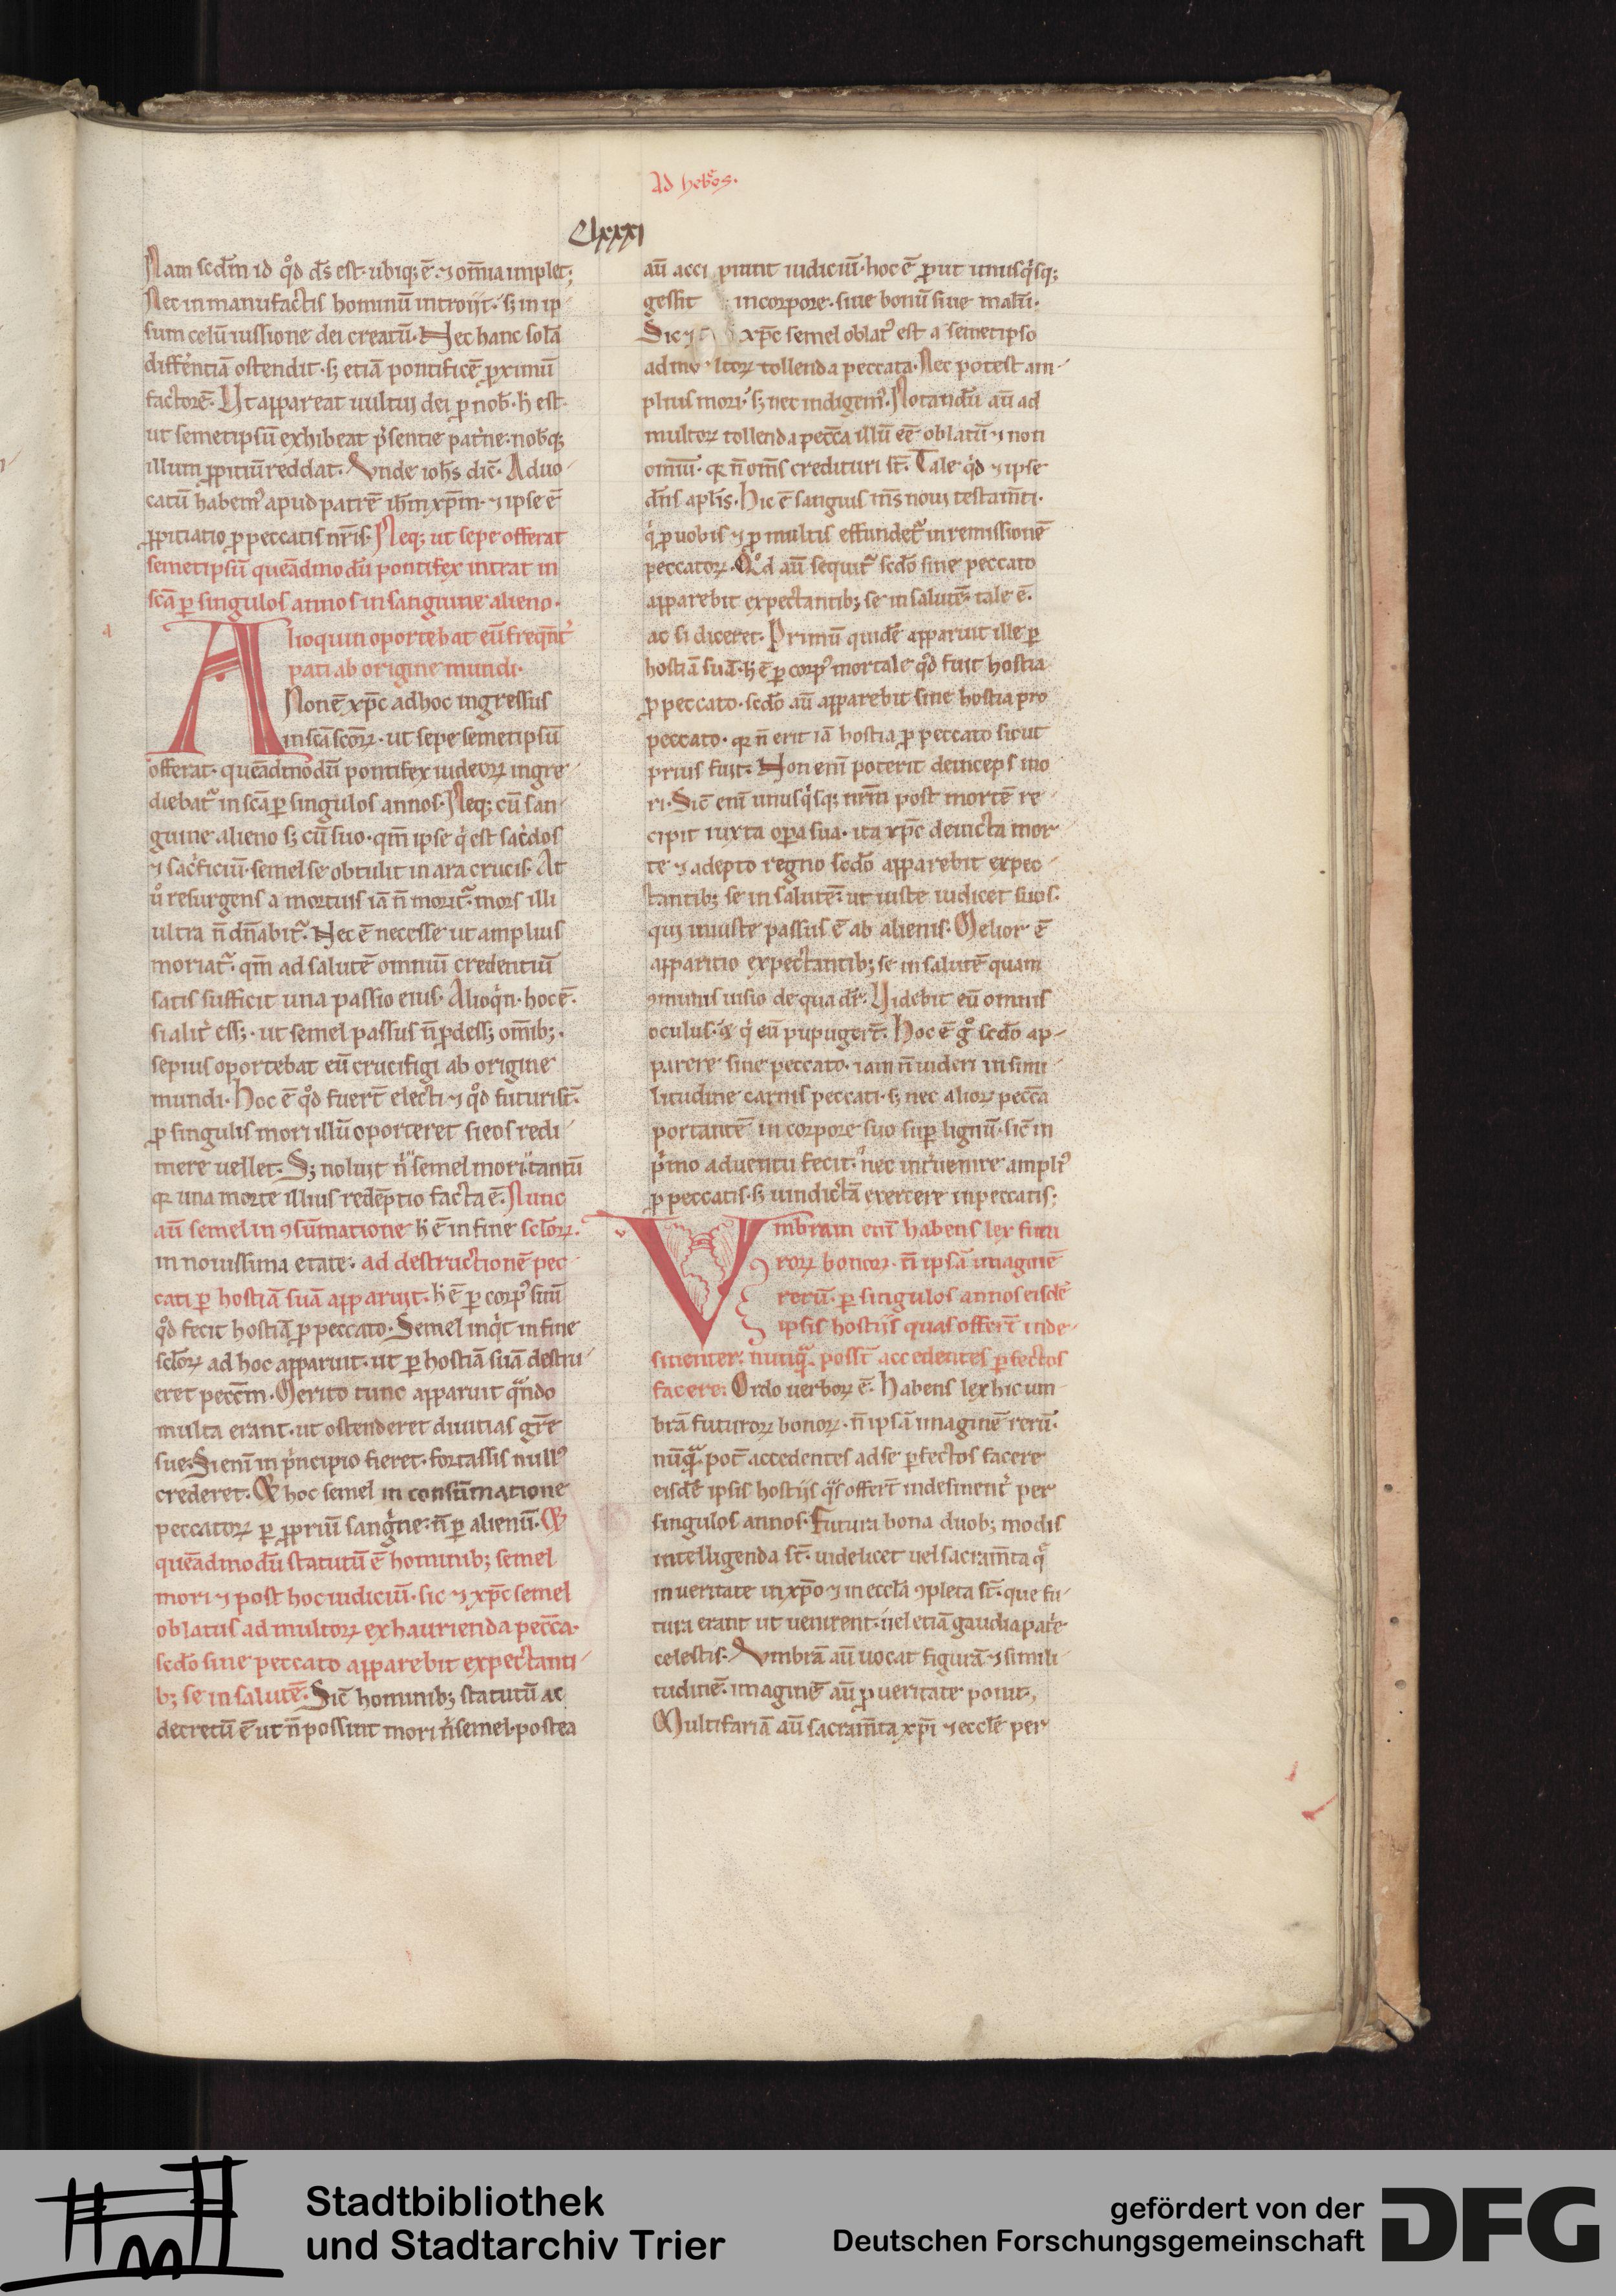 Ad heb̄os.
Clxxxi
Nam scđm id qͦd d̄s est. ubiq; ē. ⁊ om̄ia implet;
Nec in manufactis hominū introijt. sꝫ in ip
sum celū iussione dei creatū. Nec hanc solā
differ̄ntiā ostendit. sꝫ etiā pontificē ꝓximū
factorē. Ut appareat uultui dei ꝓ nob̄. h̄ est.
ut semetipsū exhibeat p̄sentie pat̄ne. nob̄qꝫ
illum ꝓpitiū reddat. Vnde ioh̄s dic̄. Aduo
catū habemꝰ apud patrē ih̄m xp̄m. ⁊ ipse ē
ꝓpitiatio ꝓ peccatis nr̄is. Neqꝫ ut sepe offerat
semetipsū queādmodū pontifex intrat in
sc̄a ꝑ singulos annos in sanguine alieno.
Alioquin oportebat eū freqn̄t̄
pati ab origine mundi.
Non ē xp̄c adhoc ingressus
in sc̄a sc̄oꝝ. ut sepe semetipsū
offerat. queādmodū pontifex iudeoꝝ ingre
diebat̄ in sc̄a ꝑ singulos annos. Neqꝫ cū san
guine alieno sꝫ cū suo. qm̄ ipse q̍ est sac̄dos
⁊ sac̍ficiū. semel se obtulit in ara crucis. At
ů resurgens a mortuis iā n̄ morit̄. mors illi
ultra n̄ dn̄abit̄. Nec ē necesse ut amplius
moriat̄. qm̄ ad salutē omniū credentiū
satis sufficit una passio eius. Alioq̍n. hoc ē.
si alit̄ essꝫ. ut semel passus n̄ ꝓdessꝫ om̄ibꝫ.
sepius oportebat eū crucifigi ab origine
mundi. hoc ē qͦd fuer̄t electi ⁊ qͦd futuri st̄.
ꝓ singulis mori illū oporteret si eos redi
mere uellet. Sꝫ noluit n̍ semel mori tantū
qꝛ una morte illius redēptio facta ē. Nunc
aū semel in ꝯsūmatione h̄ ē in fine sc̄loꝝ.
in nouissima etate. ad destructionē pec
cati ꝑ hostiā suā apparuit. h̄ ē ꝑ corpꝰ suū
qͦd fecit hostiā ꝓ peccato. Semel inq̍t in fine
sc̄loꝝ ad hoc apparuit. ut ꝑ hostiā suā destru
eret pecc̄m. Merito tunc apparuit qn̄do
multa erant. ut ostenderet diuitias gr̄e
sue. Si enī in p̍ncipio fieret. fortassis nullꝰ
crederet. Et hoc semel in consūmatione
peccatoꝝ ꝑ ꝓpriū sang̍ne. n̄ ꝑ alienū. Et
queādmodū statutū ē hominibꝫ semel
mori ⁊ post hoc iudiciū. sic ⁊ xp̄c semel
oblatus ad multoꝝ exhaurienda pecc̄a.
scđo sine peccato apparebit expectanti
bꝫ se in salutē. Sic̄ hominibꝫ statutū ac
decretū ē ut n̄ possint mori n̍ semel. postea
aū acci piunt iudiciū. hoc ē ꝓut unusq̍sqꝫ
gessit in corpore. siue bonū siue malū.
Sic ⁊ xp̄c semel oblatꝰ est a semetipso
ad mu ltoꝝ tollenda peccata. Nec potest am
plius mori. sꝫ nec indigemꝰ. Notandū aū ad
multoꝝ tollenda pecc̄a illū eē oblatū ⁊ non
omiū. qꝛ n̄ om̄s credituri st̄. Tale q̍d ⁊ ipse
dn̄s apl̄is. hic ē sanguis m̄s noui testam̄ti.
q̍ ꝓ uobis ⁊ ꝓ multis effundet̄ in remissionē
peccatoꝝ. Qͦd aū sequit̄ scđo sine peccato
apparebit expectantibꝫ se in salutē. tale ē.
ac si diceret. Primū quidē apparuit ille ꝑ
hostiā suā. h̄ ē ꝑ corpꝰ mortale qͦd fuit hostia
ꝓ peccato. scđo aū apparebit sine hostia pro
peccato. qꝛ n̄ erit iā hostia ꝓ peccato sicut
prius fuit. Non enī poterit deinceps mo
ri. Sic̄ enī unusq̍sqꝫ nr̄m post mortē re
cipit iuxta oꝑa sua. ita xp̄c deuicta mor
te ⁊ adepto regno scđo apparebit expec
tantibꝫ se in salutē. ut iuste iudicet suos.
qui iniuste passus ē ab alienis. Melior ē
apparitio expectantibꝫ se in salutē quam
ꝯmunis uisio de qua dr̄. Uidebit eū omnis
oculus. ⁊ q̍ eū pupuger̄t. hoc ē gͦ scđo ap
parere sine peccato. iam n̄ uideri in simi
litudine carnis peccati. sꝫ nec alioꝝ pecc̄a
portantē in corpore suo suꝑ lignū. sic̄ in
p̍mo aduentu fecit. nec int̄uenire amplꝰ
ꝓ peccatis. sꝫ uindictā exercere in peccatis;
Vmbram enī habens lex futu
roꝝ bonoꝝ. n̄ ipsā imaginē
rerū. ꝑ singulos annos eisdē
ipsis hostijs quas offer̄t inde
sinenter. nunq̄ poss̄t accedentes ꝑfectos
facere. Ordo uerboꝝ ē. habens lex hic um
brā futuroꝝ bonoꝝ. n̄ ipsā imaginē rerū.
nūq̄ pot̄ accedentes ad se ꝑfectos facere
eisdē ipsis hostijs q̄s offer̄t indesinent̄ per
singulos annos. Futura bona duobꝫ modis
intelligenda st̄. uidelicet uel sacram̄ta q̄
in ueritate in xp̄o ⁊ in eccl̄a ꝯpleta st̄. que fu
tura erant ut uenirent. uel etiā gaudia pat̄e
celestis. Vmbrā aū uocat figurā ⁊ simili
tudinē. imaginē aū ꝓ ueritate ponit.
Multifariā aū sacram̄ta xp̄i ⁊ eccl̄e per
Stadtbibliothek
und Stadtarchiv Trier
gefördert von der
Deutschen Forschungsgemeinschaft
DFG